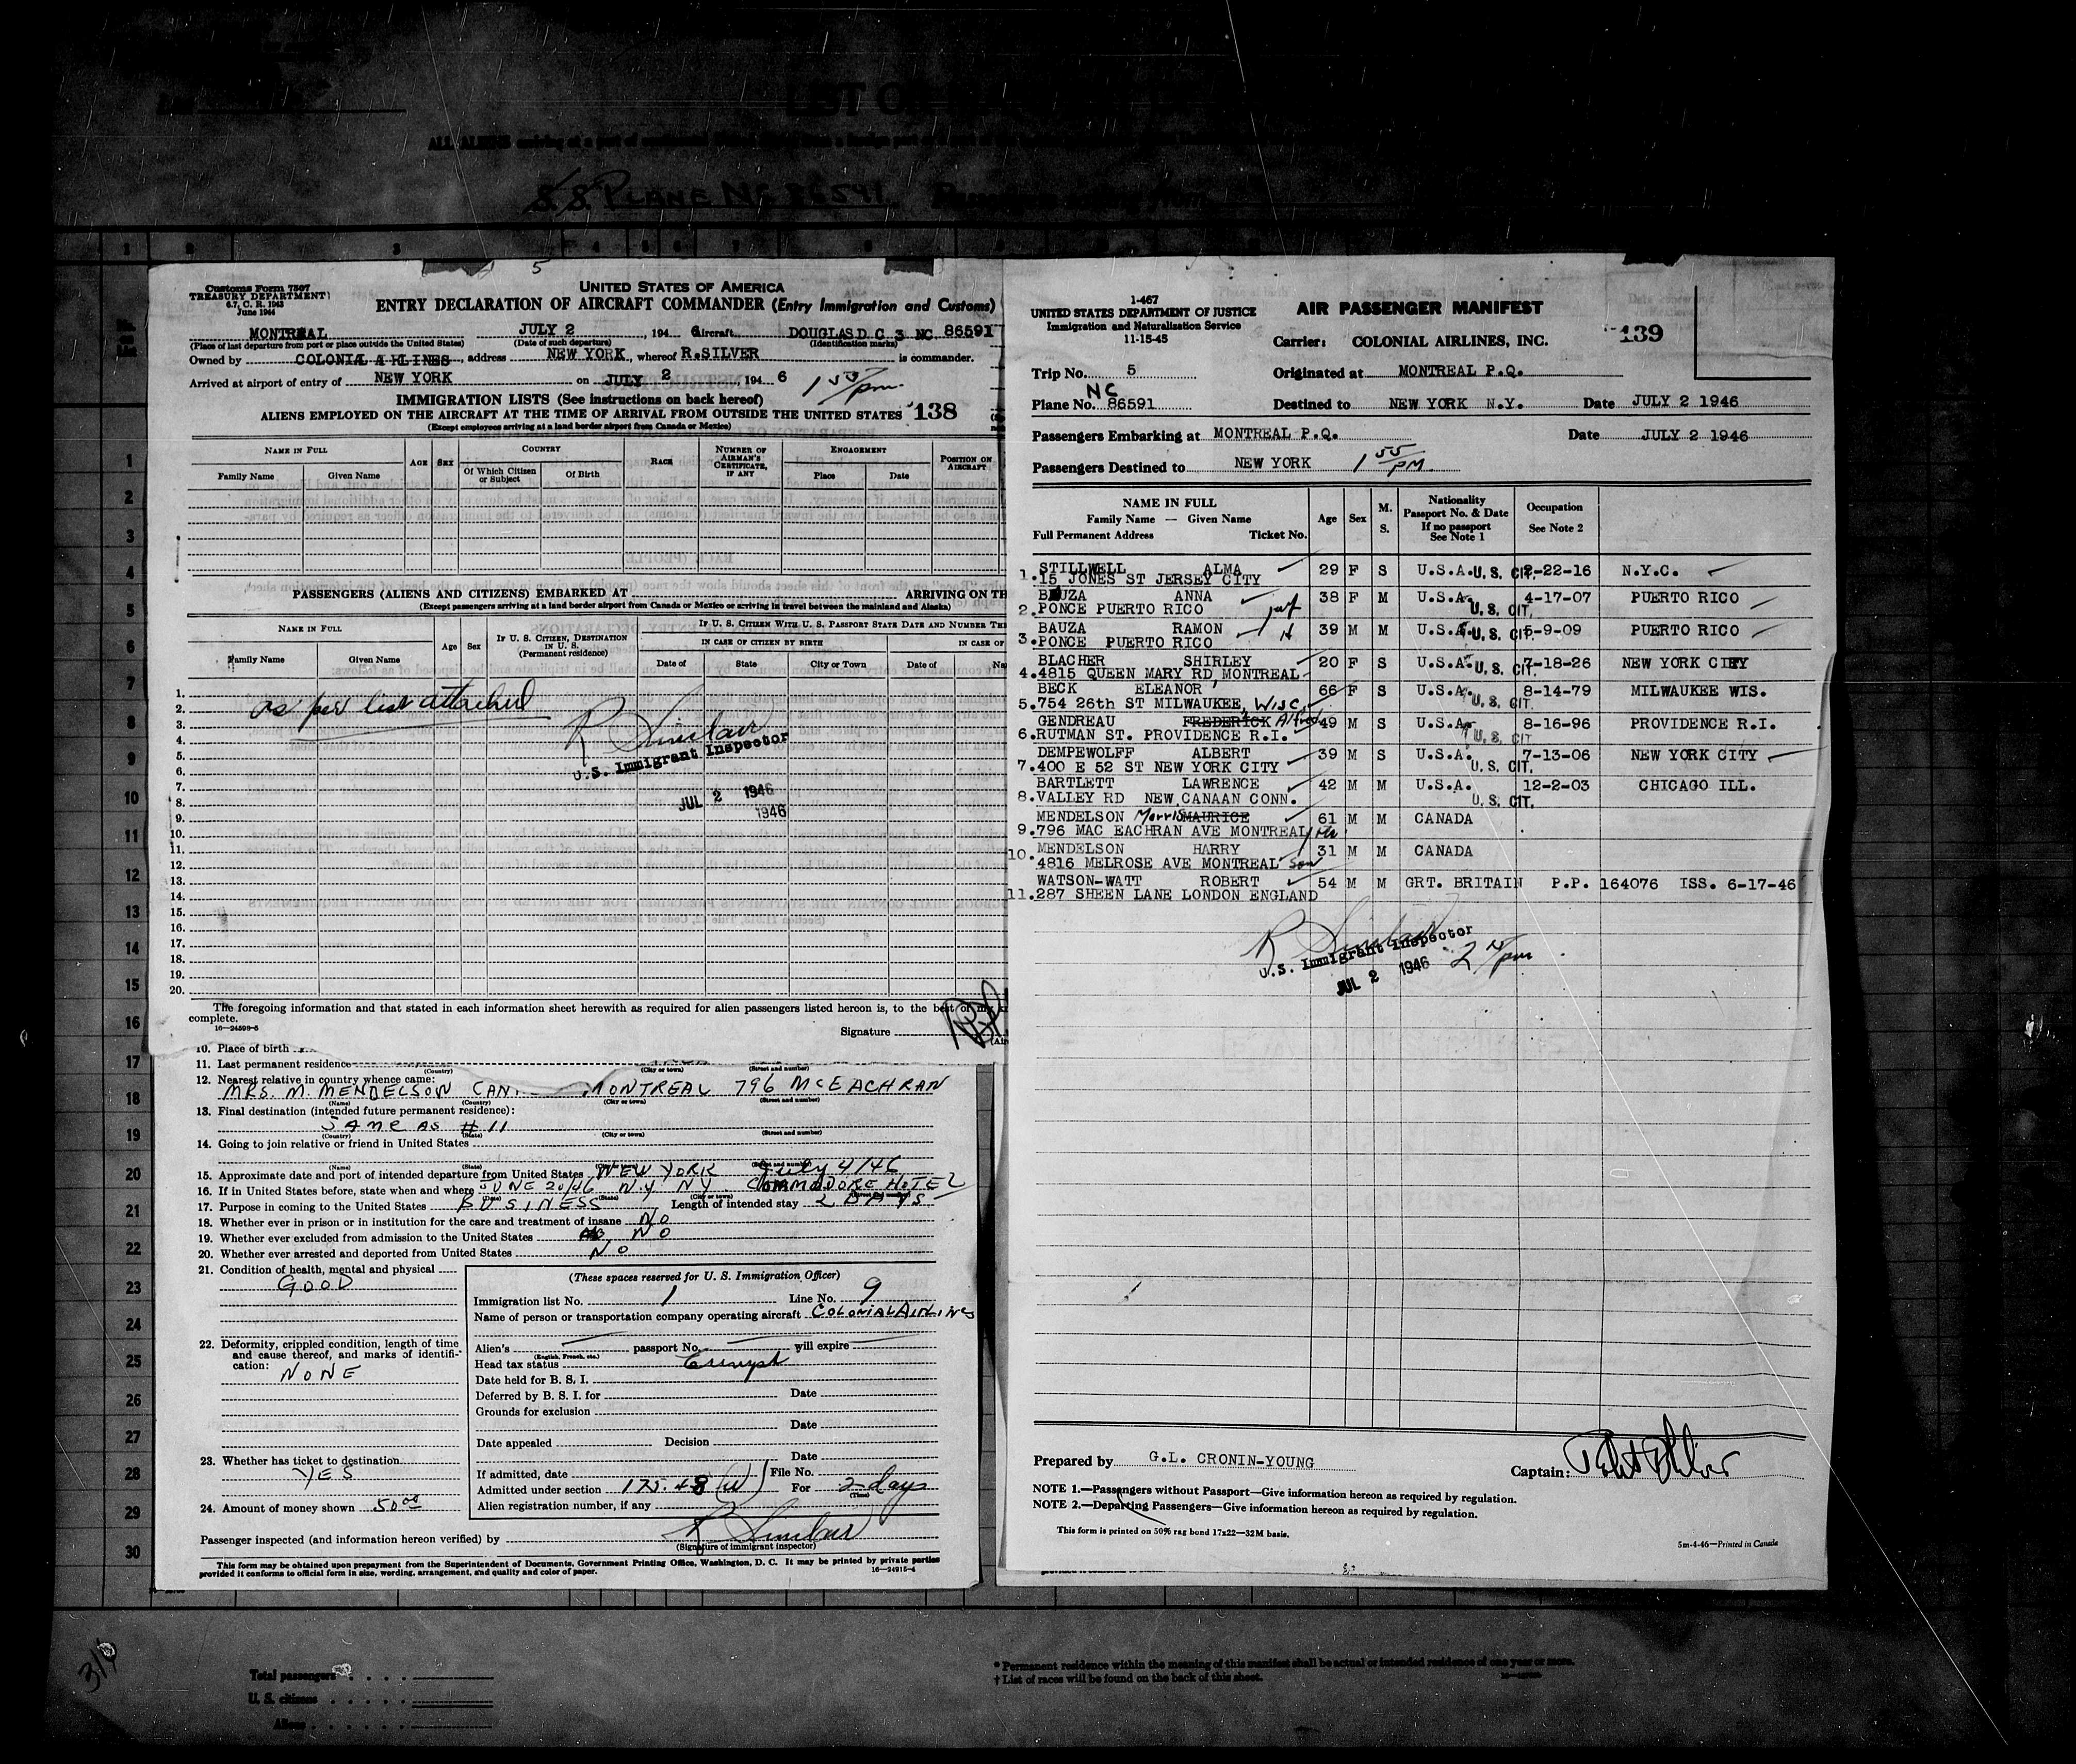 S.S. PLANE NC 86591
Customs Form 7507
TREASURY DEPARTMENT
6.7, C. R. 1943
June 1944
UNITED STATES OF AMERICA
ENTRY DECLARATION OF AIRCRAFT COMMANDER (Entry Immigration and Customs)
MONTREAL JULY 2, 194 6 Aircraft DOUGLAS D C 3 NC 86591
(Place of last departure from port or place outside the United States) (Date of such departure) (Identification marks)
Owned by COLONIAL AIRLINES, address NEW YORK, whereof R.SILVER is commander.
Arrived at airport of entry of NEW YORK on JULY 2, 194 6 1 55/pm
IMMIGRATION LISTS (See instructions on back hereof)
ALIENS EMPLOYED ON THE AIRCRAFT AT THE TIME OF ARRIVAL FROM OUTSIDE THE UNITED STATES 138
(Except employees arriving at a land border airport from Canada or Mexico)
NAME IN FULL AGE SEX COUNTRY RACE NUMBER OF AIRMAN'S CERTIFICATE, IF ANY ENGAGEMENT POSITION ON AIRCRAFT
Family Name Given Name Of Which Citizen or Subject Of Birth Place Date
PASSENGERS (ALIENS AND CITIZENS) EMBARKED AT ARRIVING ON TH
(Except passengers arriving at a land border airport from Canada or Mexico or arriving in travel between the mainland and Alaska)
NAME IN FULL Age Sex IF U. S. CITIZEN, DESTINATION IN U. S. (Permanent residence) IF U. S. CITIZEN WITH U. S. PASSPORT STATE DATE AND NUMBER THE
IN CASE OF CITIZEN BY BIRTH IN CASE OF
Family Name Given Name Date of State City or Town Date of Na
1.
2. as per list attached
3.
4.
5.
6.
7.
8.
9.
10.
11.
12.
13.
14.
15.
16.
17.
18.
19.
20.
R Sinclair
U.S. Immigrant Inspector
JUL 2 1946
1946
The foregoing information and that stated in each information sheet herewith as required for alien passengers listed hereon is, to the best of my
complete.
16—24599-5
Signature
10. Place of birth
11. Last permanent residence
(Country) (City or town) (Street and number)
12. Nearest relative in country whence came:
MRS. M. MENDELSON CAN. MONTREAL 796 McEACHRAN
(Name) (Country) (City or town) (Street and number)
13. Final destination (intended future permanent residence):
SAME AS # 11
(Country) (State) (City or town) (Street and number)
14. Going to join relative or friend in United States
(Name) (State) (City or town) (Street and number)
15. Approximate date and port of intended departure from United States NEW YORK July 4/46
16. If in United States before, state when and where JUNE 20/46 N.Y NY. COMMODORE HOTEL
(Date) (State) (City or town) (Street and number)
17. Purpose in coming to the United States BUSINESS Length of intended stay 2 DAYS
18. Whether ever in prison or in institution for the care and treatment of insane NO
19. Whether ever excluded from admission to the United States NO
20. Whether ever arrested and deported from United States NO
21. Condition of health, mental and physical
GOOD
22. Deformity, crippled condition, length of time
and cause thereof, and marks of identifi-
cation:
NONE
23. Whether has ticket to destination
YES
24. Amount of money shown 50 00
(These spaces reserved for U. S. Immigration Officer)
Immigration list No. 1 Line No. 9
Name of person or transportation company operating aircraft COLONIAL AIRLINES
Alien's passport No. will expire
(English, French, etc.)
Head tax status Exempt
Date held for B. S. I.
Deferred by B. S. I. for Date
Grounds for exclusion
Date
Date appealed Decision
Date
If admitted, date File No.
Admitted under section 175.48 (w) For 2 days
(Time)
Alien registration number, if any
Passenger inspected (and information hereon verified) by R Sinclair
(Signature of immigrant inspector)
This form may be obtained upon prepayment from the Superintendent of Documents, Government Printing Office, Washington, D. C. It may be printed by private parties
provided it conforms to official form in size, wording, arrangement, and quality and color of paper. 16—24915-4
1-467
UNITED STATES DEPARTMENT OF JUSTICE
Immigration and Naturalization Service
11-15-45
AIR PASSENGER MANIFEST
139
Carrier: COLONIAL AIRLINES, INC.
Trip No. 5 Originated at MONTREAL P.Q.
Plane No. NC 86591 Destined to NEW YORK N.Y. Date JULY 2 1946
Passengers Embarking at MONTREAL P.Q. Date JULY 2 1946
Passengers Destined to NEW YORK 1 55/PM
NAME IN FULL
Family Name — Given Name
Full Permanent Address Ticket No. Age Sex M. S. Nationality Passport No. & Date If no passport See Note 1 Occupation See Note 2
STILLWELL ALMA 29 F S U.S.A. U.S. CIT. 2-22-16 N.Y.C.
1. 15 JONES ST JERSEY CITY
BAUZA ANNA 38 F M U.S.A. 4-17-07 PUERTO RICO
2. PONCE PUERTO RICO U.S. CIT.
BAUZA RAMON 39 M M U.S.A. U.S. CIT. 5-9-09 PUERTO RICO
3. PONCE PUERTO RICO
BLACHER SHIRLEY 20 F S U.S.A. U.S. CIT. 7-18-26 NEW YORK CITY
4. 4815 QUEEN MARY RD MONTREAL
BECK ELEANOR 66 F S U.S.A. 8-14-79 MILWAUKEE WIS.
5. 754 26th ST MILWAUKEE, Wisc. U.S. CIT.
GENDREAU FREDERICK Alfred 49 M S U.S.A. 8-16-96 PROVIDENCE R.I.
6. RUTMAN ST. PROVIDENCE R.I. U.S. CIT
DEMPEWOLFF ALBERT 39 M S U.S.A. 7-13-06 NEW YORK CITY
7. 400 E 52 ST NEW YORK CITY U.S. CIT.
BARTLETT LAWRENCE 42 M M U.S.A. 12-2-03 CHICAGO ILL.
8. VALLEY RD NEW CANAAN CONN. U.S. CIT.
MENDELSON Morris MAURICE 61 M M CANADA
9. 796 MAC EACHRAN AVE MONTREAL
MENDELSON HARRY 31 M M CANADA
10. 4816 MELROSE AVE MONTREAL son
WATSON-WATT ROBERT 54 M M GRT. BRITAIN P.P. 164076 ISS. 6-17-46
11. 287 SHEEN LANE LONDON ENGLAND
R Sinclair
U.S. Immigrant Inspector
JUL 2 1946
Prepared by G.L. CRONIN-YOUNG
Captain:
NOTE 1.—Passengers without Passport—Give information hereon as required by regulation.
NOTE 2.—Departing Passengers—Give information hereon as required by regulation.
This form is printed on 50% rag bond 17x22—32M basis.
5m-4-46—Printed in Canada
Total passengers
U. S. citizens
Aliens
* Permanent residence within the meaning of this manifest shall be actual or intended residence of one year or more.
† List of races will be found on the back of this sheet.